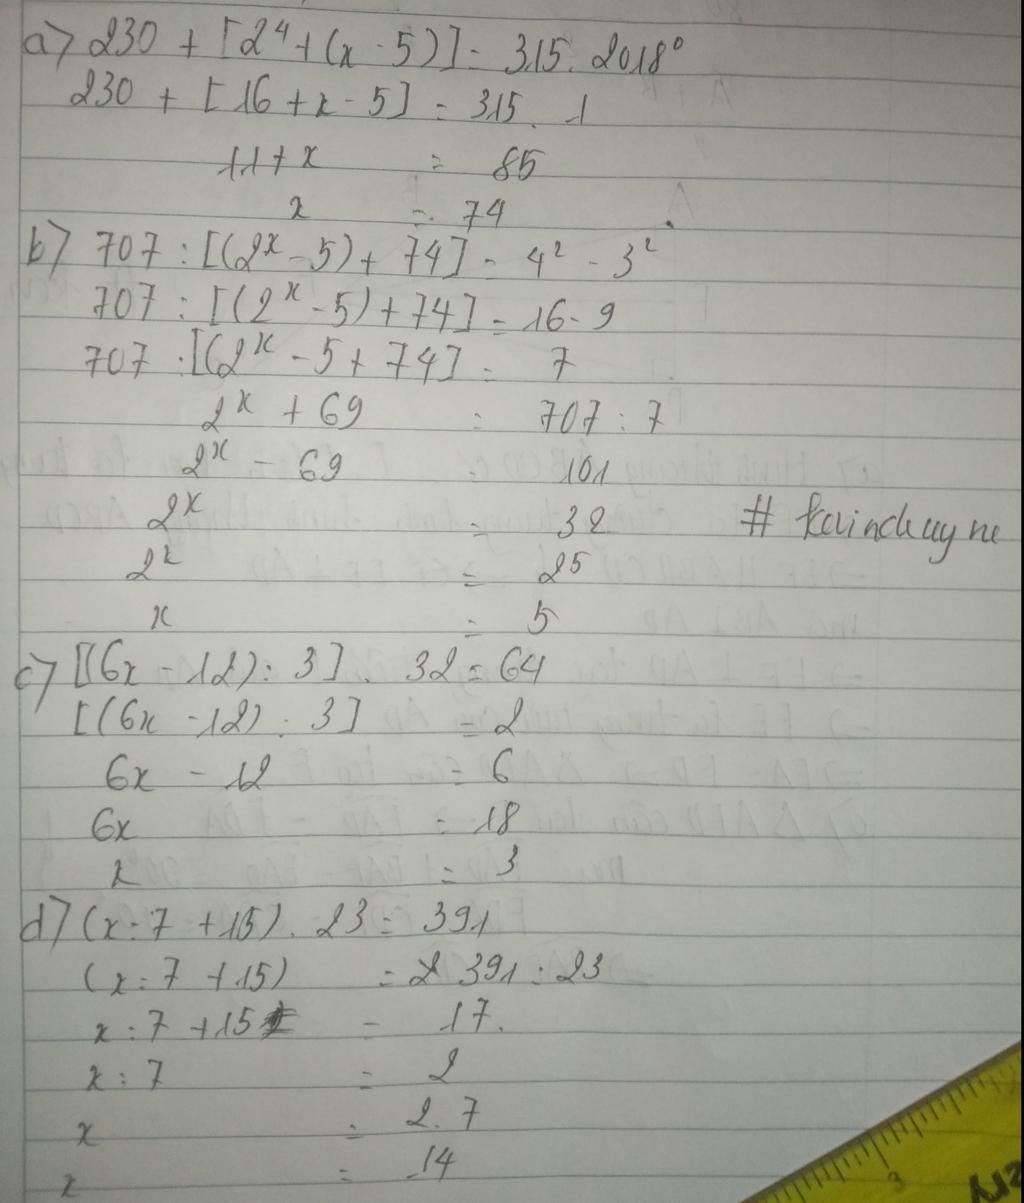 a) 230 + [2⁴ + (x - 5)] = 315. 2018⁰
230 + [16 + x - 5] = 315. 1
11 + x = 85
x = 74
b) 707 : [(2ˣ - 5) + 74] = 4² - 3²
707 : [(2ˣ - 5) + 74] = 16 - 9
707 : [(2ˣ - 5 + 74] = 7
2ˣ + 69 = 707 : 7
2ˣ - 69 101
2ˣ = 32
2ˣ = 2⁵
x = 5
c) [(6x - 12) : 3]. 32 = 64
[(6x - 12) : 3] = 2
6x - 12 = 6
6x = 18
x = 3
d) (x : 7 + 15). 23 = 391
(x : 7 + 15) = 391 : 23
x : 7 + 15 = 17.
x : 7 = 2
x = 2. 7
x = 14